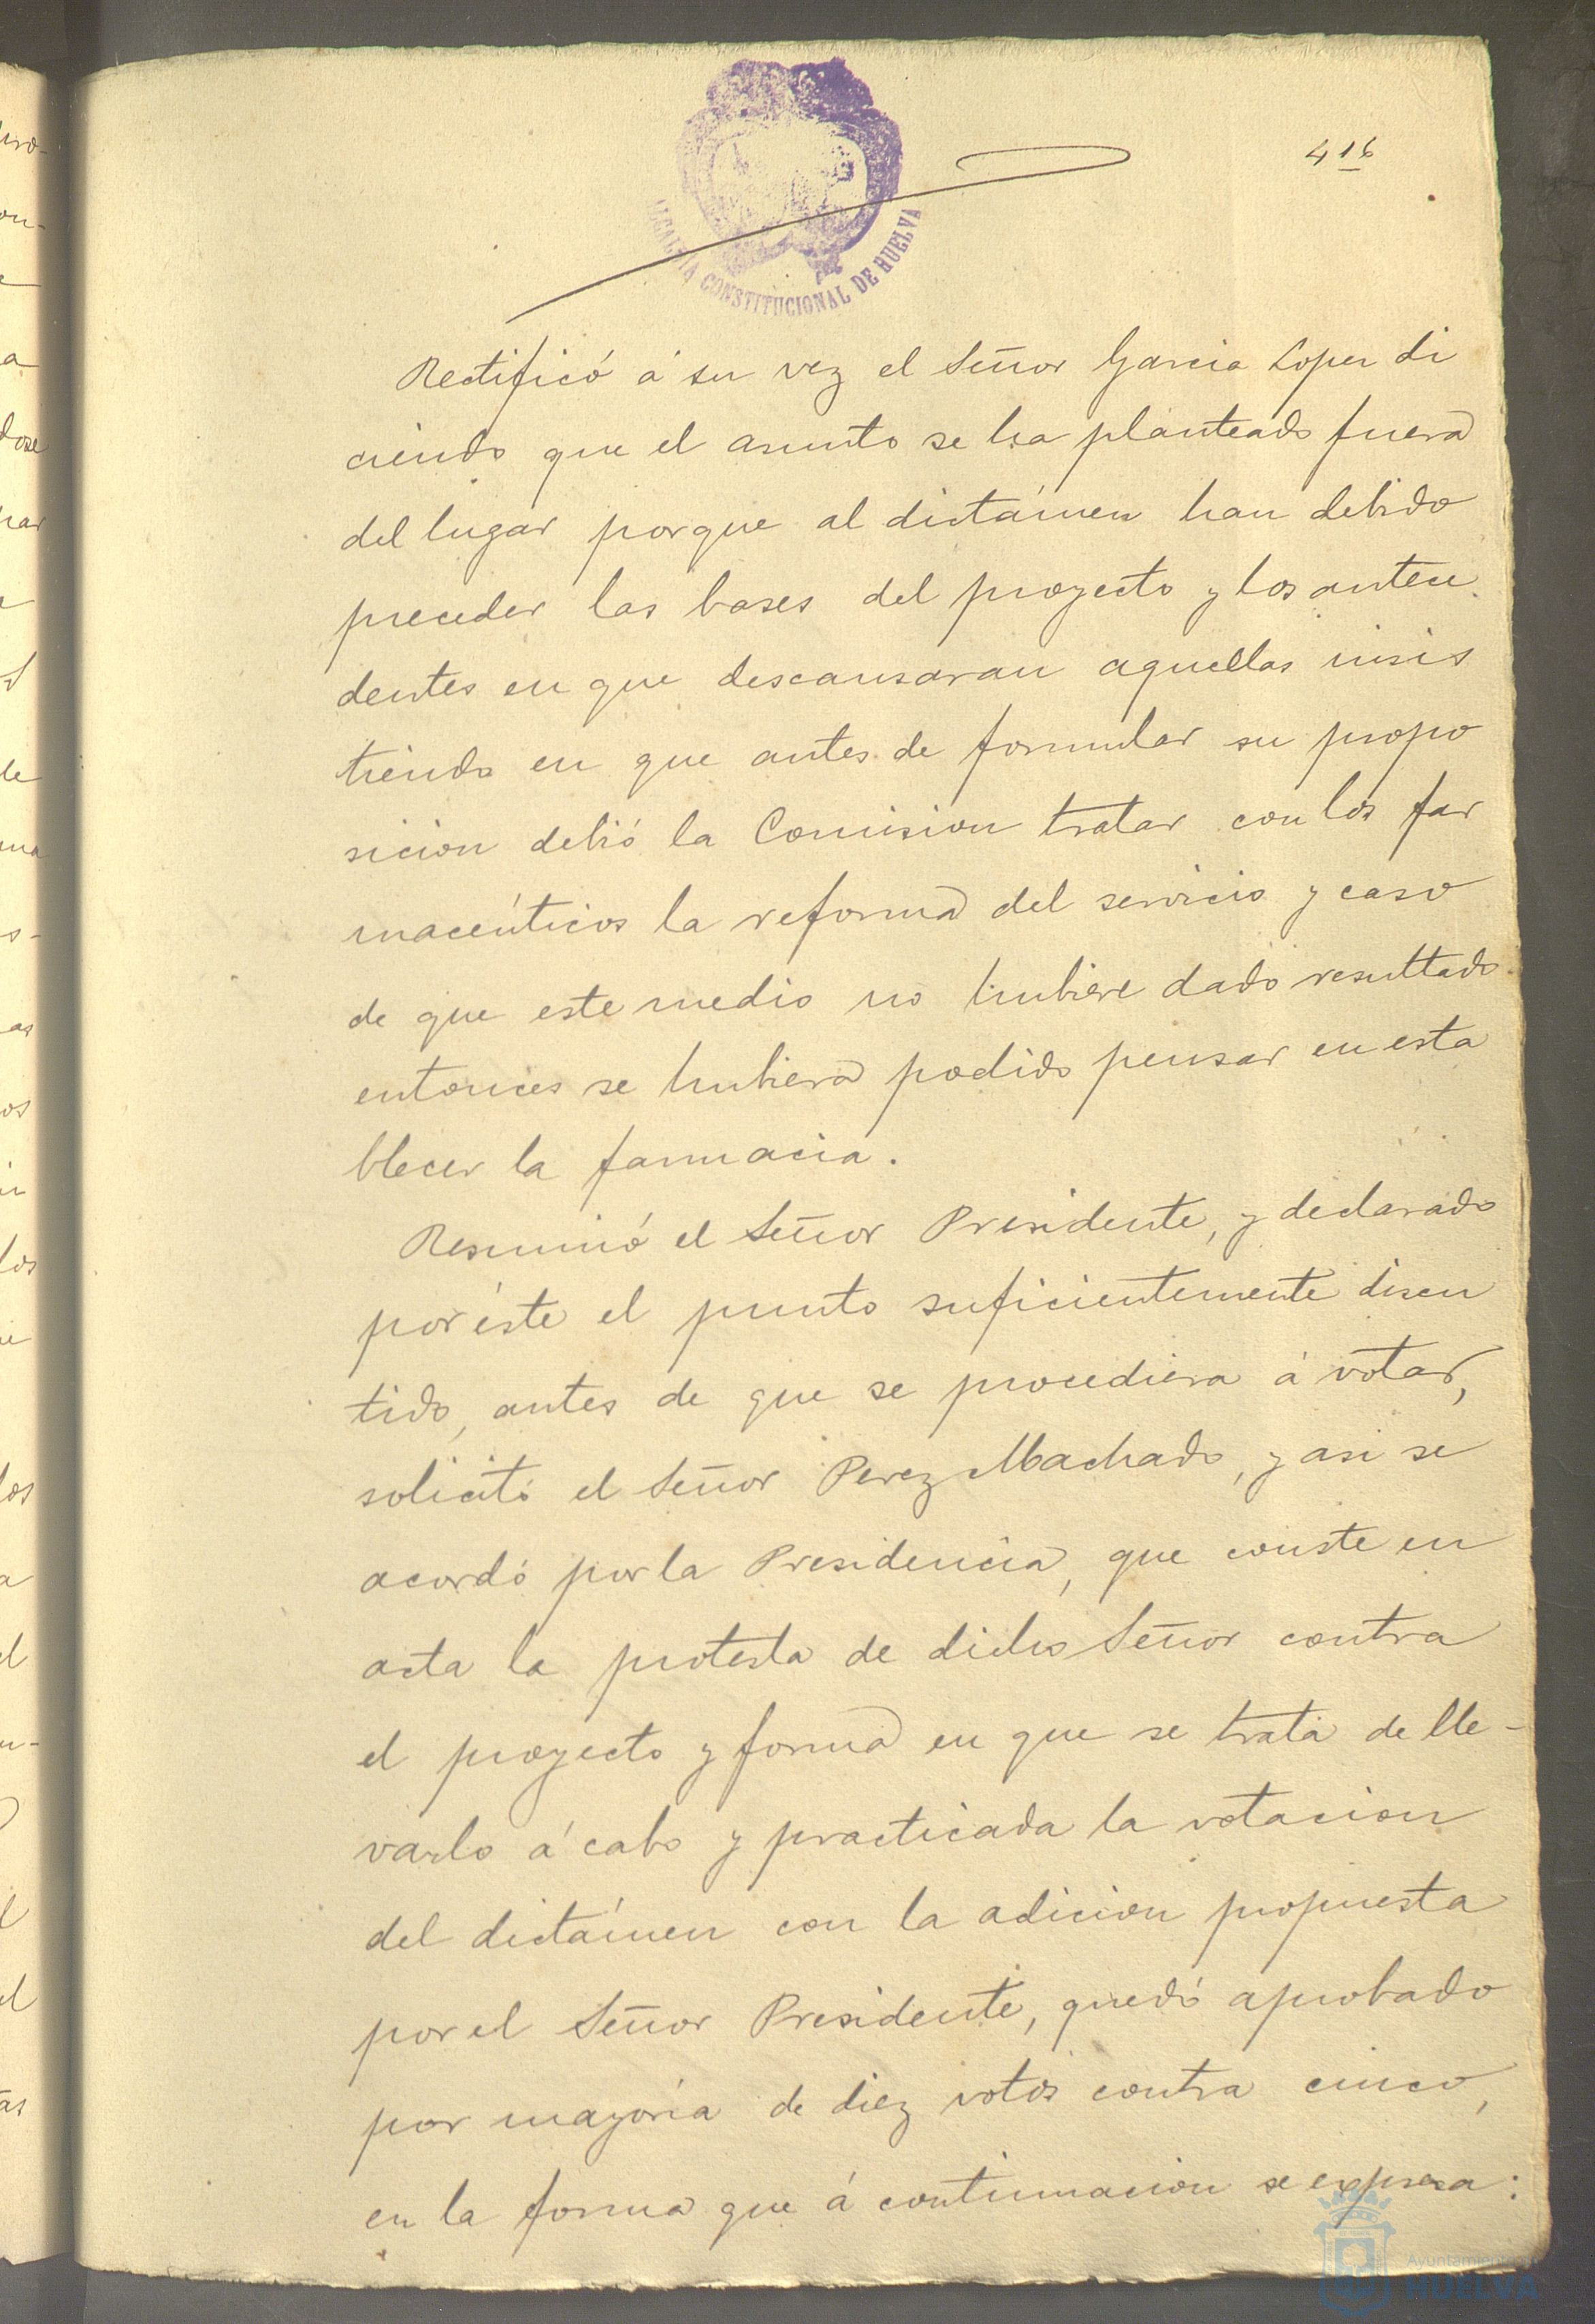 416
ALCALDIA CONSTITUCIONAL DE HUELVA
Rectificó á su vez el Señor Garcia Lopez di
ciendo que el asunto se ha planteado fuera
del lugar porque al dictámen han debido
preceder las bases del proyecto y los antece
dentes en que descansaran aquellas insis
tiendo en que antes de formular su propo
sicion debió la Comision tratar con los far
macéuticos la reforma del servicio y caso
de que este medio no hubiere dado resultado
entonces se hubiera podido pensar en esta
blecer la farmacia.
Resumió el Señor Presidente, y declarado
por éste el punto suficientemente discu
tido, antes de que se procediera á votar,
solicitó el Señor Perez Machado, y asi se
acordó por la Presidencia, que conste en
acta la protesta de dicho Señor contra
el proyecto y forma en que se trata de lle-
varlo á cabo y practicada la votacion
del dictámen con la adicion propuesta
por el Señor Presidente, quedó aprobado
por mayoría de diez votos contra cinco,
en la forma que á continuacion se expresa:
Ayuntamiento
HUELVA